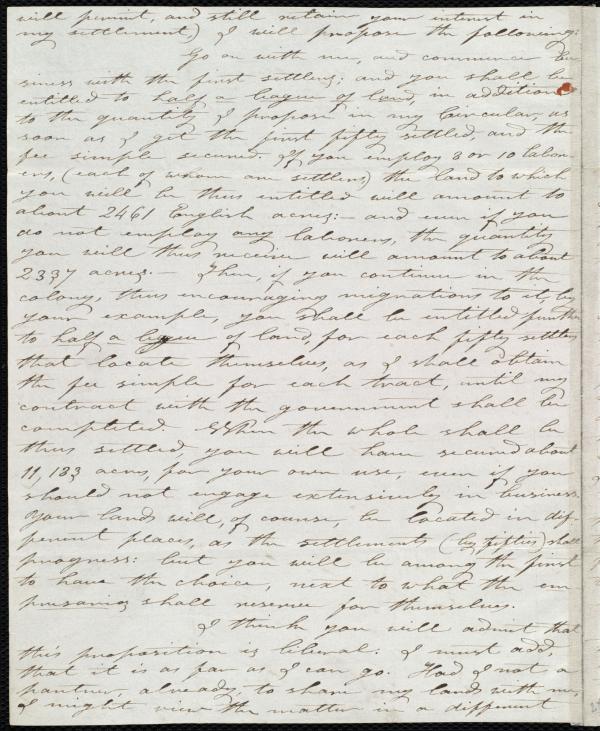 will permit, and still retain your interest in
my settlement) I will propose the following:
Go on with me, and commence bu-
siness with the first settlers; and you shall be
entitled to half a league of land, in addition
to the quantity I propose in my Circular, as
soon as I get the first fifty settled, and the
fee simple secured. If you employ 8 or 10 labor-
ers, (each of whom are settlers) the land to which
you will be thus entitled will amount to
about 2461 English acres:— and even if you
do not employ any laborers, the quantity
you will thus receive will amount to about
2337 acres:— Then, if you continue in the
colony, thus encouraging migrations to it, by
your example, you shall be entitled further
to half a league of land, for each fifty settlers
that locate themselves, as I shall obtain
the fee simple for each tract, until my
contract with the government shall be
completed. When the whole shall be
thus settled, you will have secured about
11,183 acres, for your own use, even if you
should not engage extensively in business.
Your lands will, of course, be located in dif-
ferent places, as the settlements (by fifties) shall
progress: but you will be among the first
to have the choice, next to what the em-
presarios shall reserve for themselves.
I think you will admit that
this proposition is liberal: I must add,
that it is as far as I can go. Had I not a
partner, already, to share my lands with me,
I might view the matter in a different